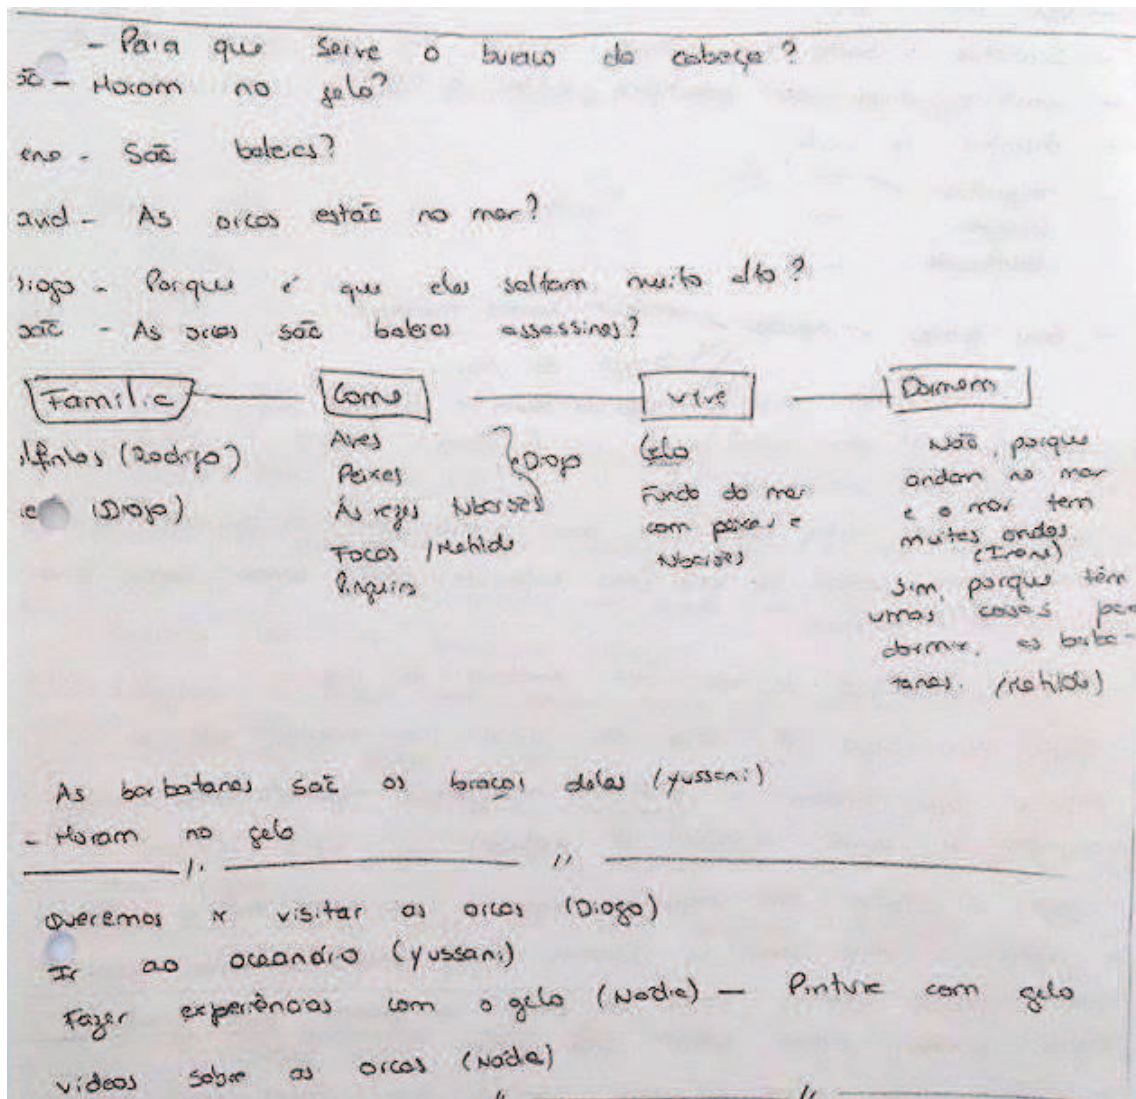 - Para que serve o buraco da cabeça?
- Moram no gelo?
- São baleias?
- As orcas estão no mar?
- Porque é que elas saltam muito alto?
- As orcas são baleias assassinas?
Família Come vive Dormem
(Rodrigo)
(Diogo)
Aves
Peixes
Às vezes tubarões
Focas / Matilde
Pinguins
Diogo
Gelo
Fundo do mar
com peixes e
tubarões
Não, porque
andam no mar
e o mar tem
muitas ondas.
(Irene)
Sim, porque têm
umas coisas
dormir, as barba-
tanas. (Matilde)
As barbatanas são os braços delas (Yussani)
- Moram no gelo
Queremos ir visitar as orcas (Diogo)
Ir ao oceanário (Yussani)
Fazer experiências com o gelo (Nádia) — Pintura com gelo
vídeos sobre as orcas (Nádia)